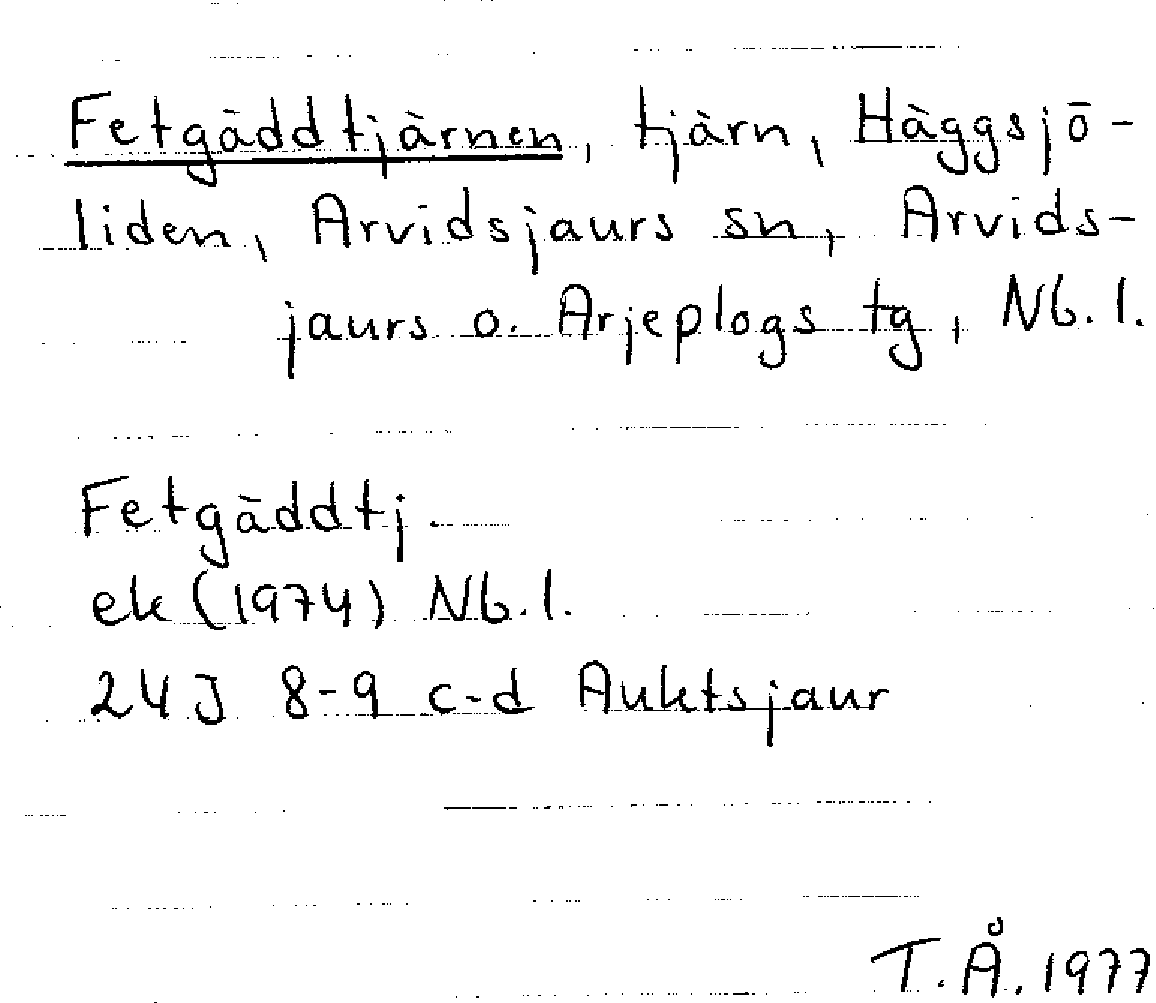 Fetgäddtjärnen, tjärn, Häggsjö-
liden, Arvidsjaurs sn, Arvids-
jaurs o. Arjeplogs tg, Nb. l.
Fetgäddtj.
ek (1974) Nb. l.
24J 8-9 c-d Auktsjaur
T. Å. 1977